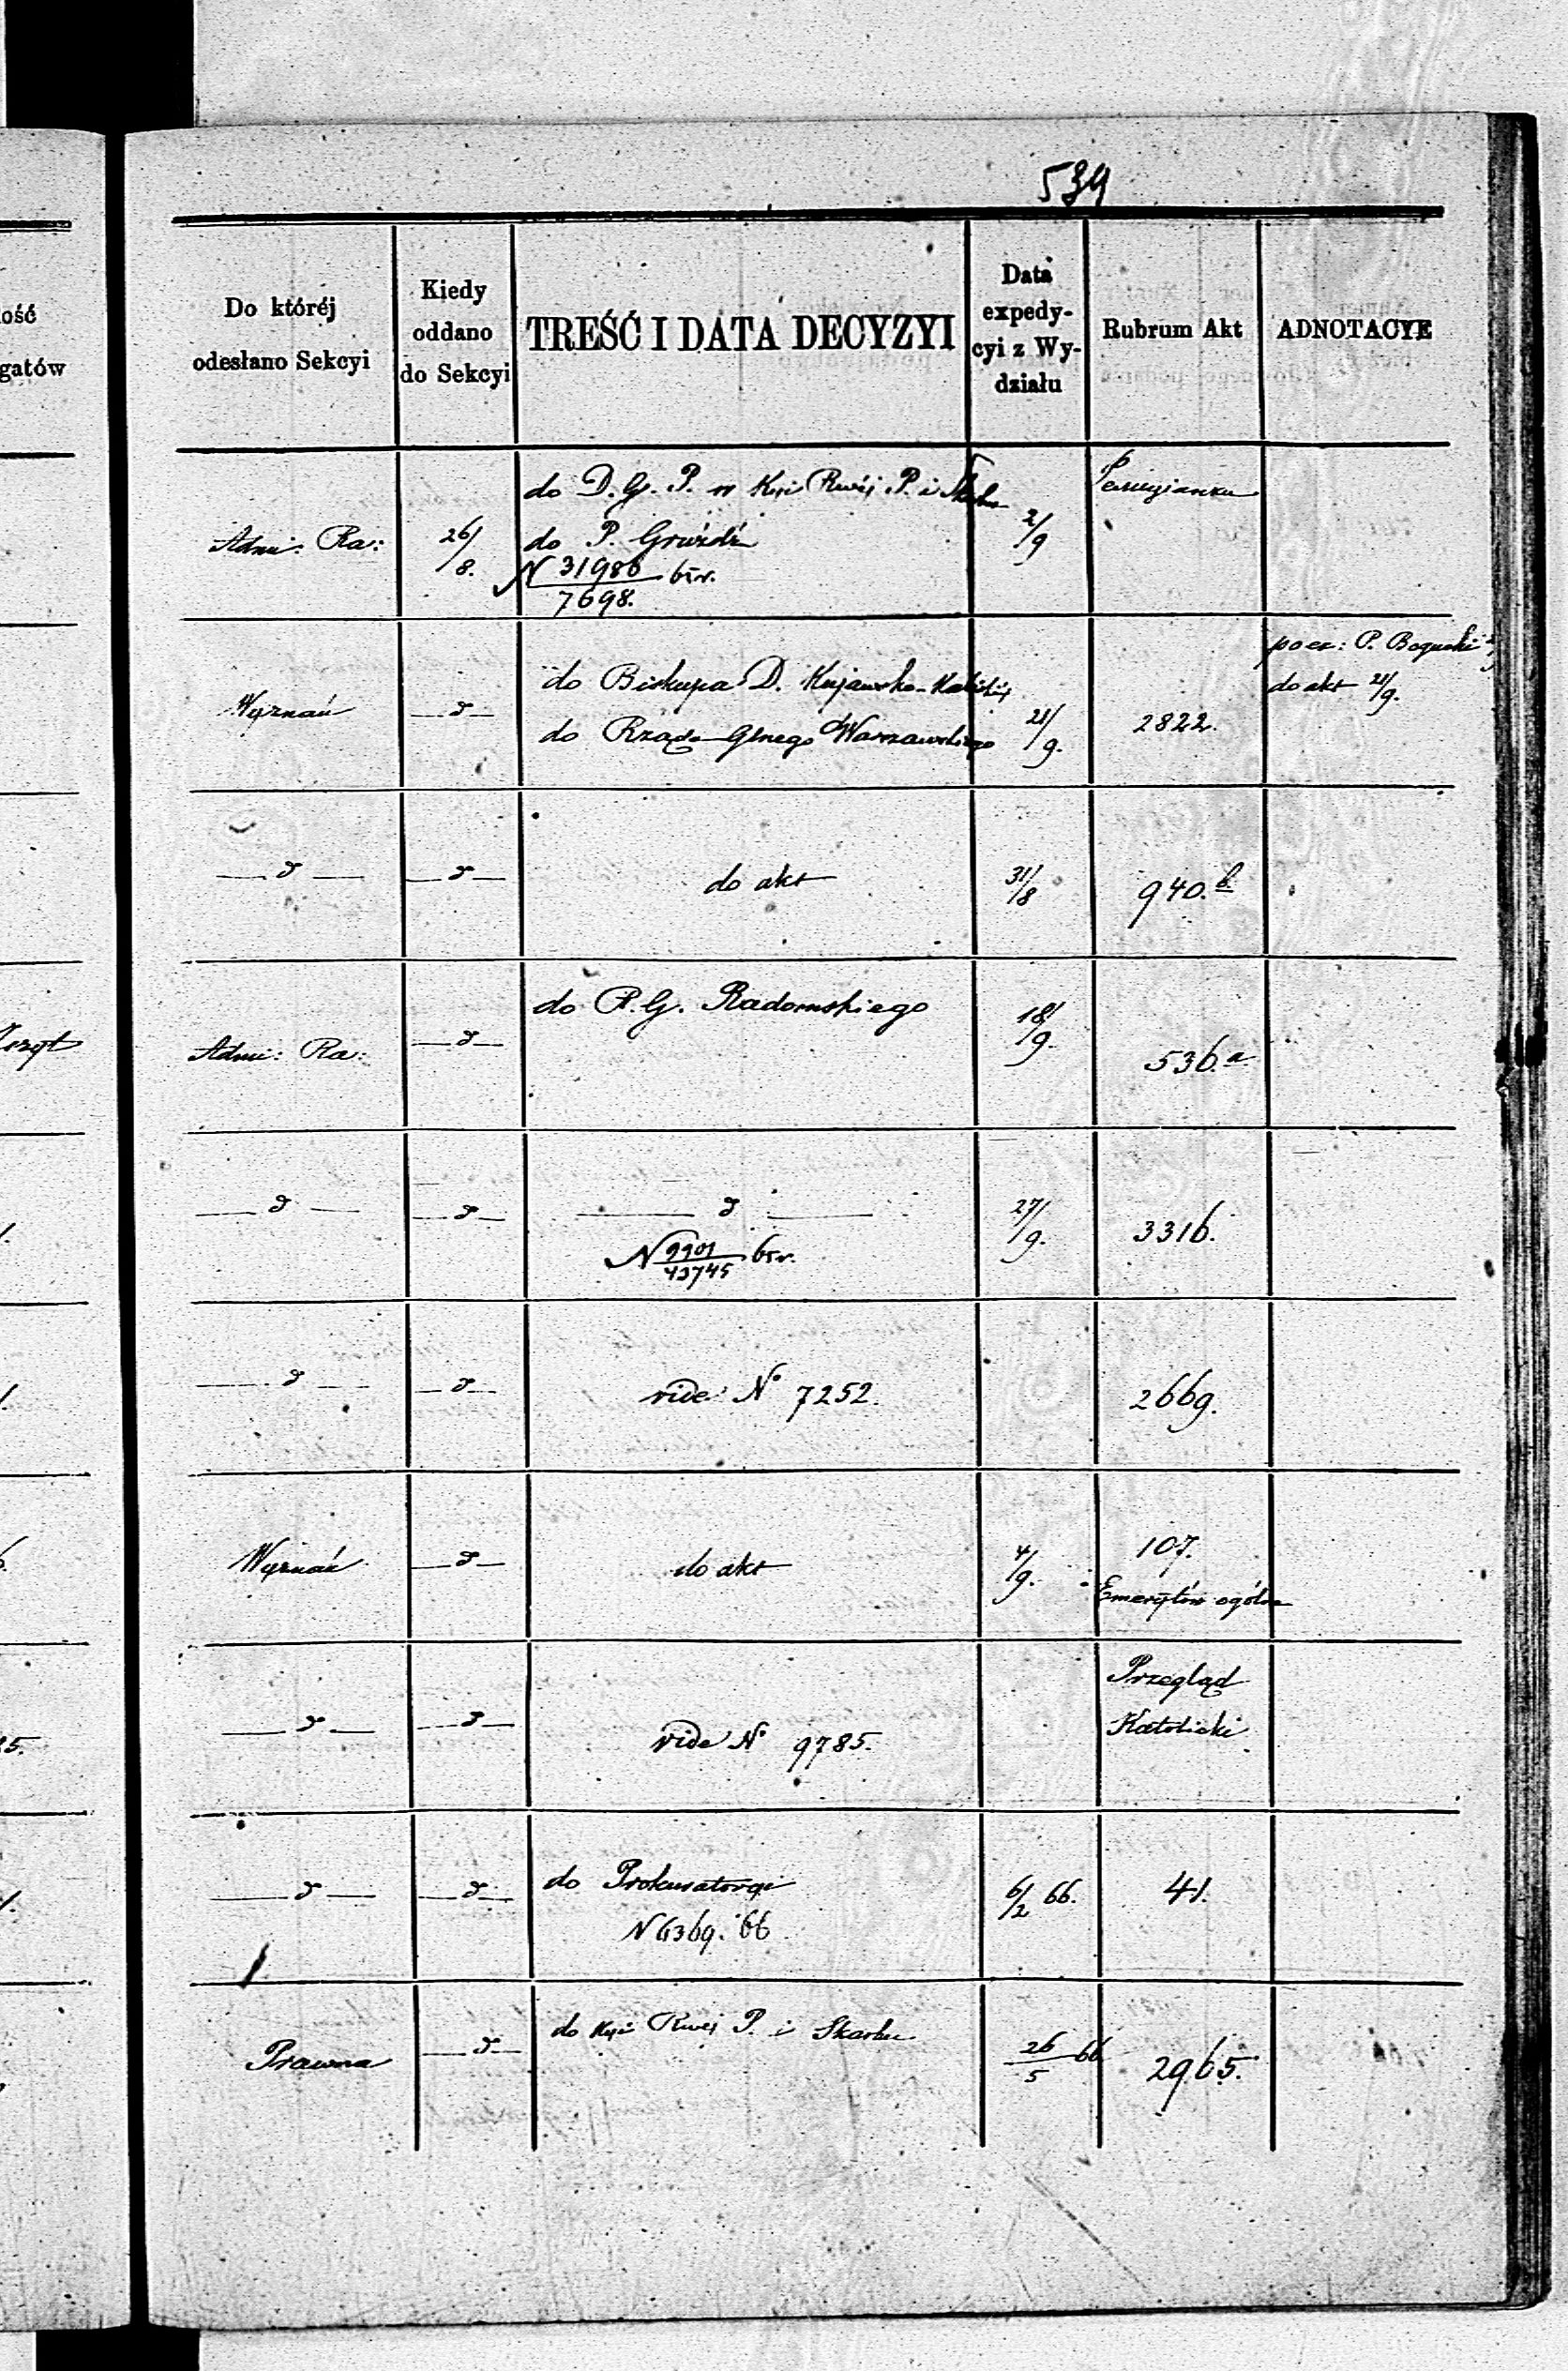 539
ość
gatów
Do któréj
odesłano Sekcyi
Kiedy
oddano
do Sekcyi
TREŚĆ I DATA DECYZYI
Data
expedy-
cyi z Wy-
działu
Rubrum Akt
ADNOTACYE
Admi: Ra:
26/8.
do D. G. P. w Kyi Rwéj P. i Skarbu
do P. Gróźdź
N 31986/7698. btr.
2/9
Wyznań
—d—
do Biskupa D. Kujawsko-Kaliskiéj
do Rządo Glnego Warszawskiego
21/9.
2822.
poex: P. Boguski
do akt 21/9.
—d—
—d—
do akt
31/8
940.b
Admi: Ra:
—d—
do R. G. Radomskiego
18/9.
536.a
—d—
—d—
—d—
N 9901/43745 btr.
27/9.
3316.
—d—
—d—
vide N° 7252.
2669.
Wyznań
—d—
do akt
4/9.
107.
Emerytów ogólne
—d—
—d—
vide N° 9785.
Przegląd
Katolicki
—d—
—d—
do Prokuratoryi
N 6369. 66
6/2 66.
41.
Prawna
—d—
do Kyi Rwéj P. i Skarbu
26/5 66
2965.